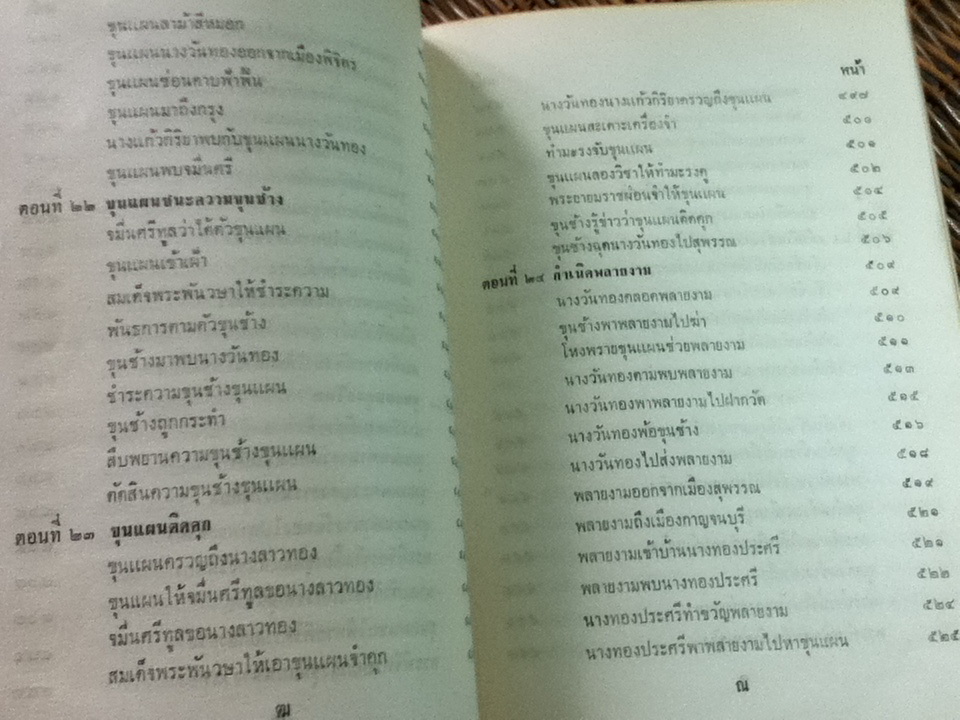 ขุนแผนลาม้าสีหมอก
ขุนแผนนางวันทองออกจากเมืองพิจิตร
ขุนแผนซ่อนดาบฟ้าฟื้น
ขุนแผนมาถึงกรุง
นางแก้วกิริยาพบกับขุนแผนนางวันทอง
ขุนแผนพบจมื่นศรี
ตอนที่ ๒๒ ขุนแผนชนะความขุนช้าง
จมื่นศรีทูลว่าได้ตัวขุนแผน
ขุนแผนเข้าเฝ้า
สมเด็จพระพันวษาให้ชำระความ
พันธการตามตัวขุนช้าง
ขุนช้างมาพบนางวันทอง
ชำระความขุนช้างขุนแผน
ขุนช้างถูกกระทำ
สืบพยานความขุนช้างขุนแผน
ตัดสินความขุนช้างขุนแผน
ตอนที่ ๒๓ ขุนแผนติดคุก
ขุนแผนครวญถึงนางลาวทอง
ขุนแผนให้จมื่นศรีทูลขอนางลาวทอง
จมื่นศรีทูลขอนางลาวทอง
สมเด็จพระพันวษาให้เอาขุนแผนจำคุก
ฒ
หน้า
นางวันทองนางแก้วกิริยาครวญถึงขุนแผน ๔๙๗
ขุนแผนสะเดาะเครื่องจำ ๕๐๑
ทำมะรงจับขุนแผน ๕๐๑
ขุนแผนลองวิชาให้ทำมะรงดู ๕๐๒
พระยายมราชผ่อนจำให้ขุนแผน ๕๐๔
ขุนช้างรู้ข่าวว่าขุนแผนติดคุก ๕๐๕
ขุนช้างฉุดนางวันทองไปสุพรรณ ๕๐๖
ตอนที่ ๒๔ กำเนิดพลายงาม ๕๐๙
นางวันทองคลอดพลายงาม ๕๐๙
ขุนช้างพาพลายงามไปฆ่า ๕๑๐
โหงพรายขุนแผนช่วยพลายงาม ๕๑๑
นางวันทองตามพบพลายงาม ๕๑๓
นางวันทองพาพลายงามไปฝากวัด ๕๑๕
นางวันทองพ้อขุนช้าง ๕๑๖
นางวันทองไปส่งพลายงาม ๕๑๘
พลายงามออกจากเมืองสุพรรณ ๕๑๙
พลายงามถึงเมืองกาญจนบุรี ๕๒๑
พลายงามเข้าบ้านนางทองประศรี ๕๒๑
พลายงามพบนางทองประศรี ๕๒๒
นางทองประศรีทำขวัญพลายงาม ๕๒๔
นางทองประศรีพาพลายงามไปหาขุนแผน ๕๒๕
ณ